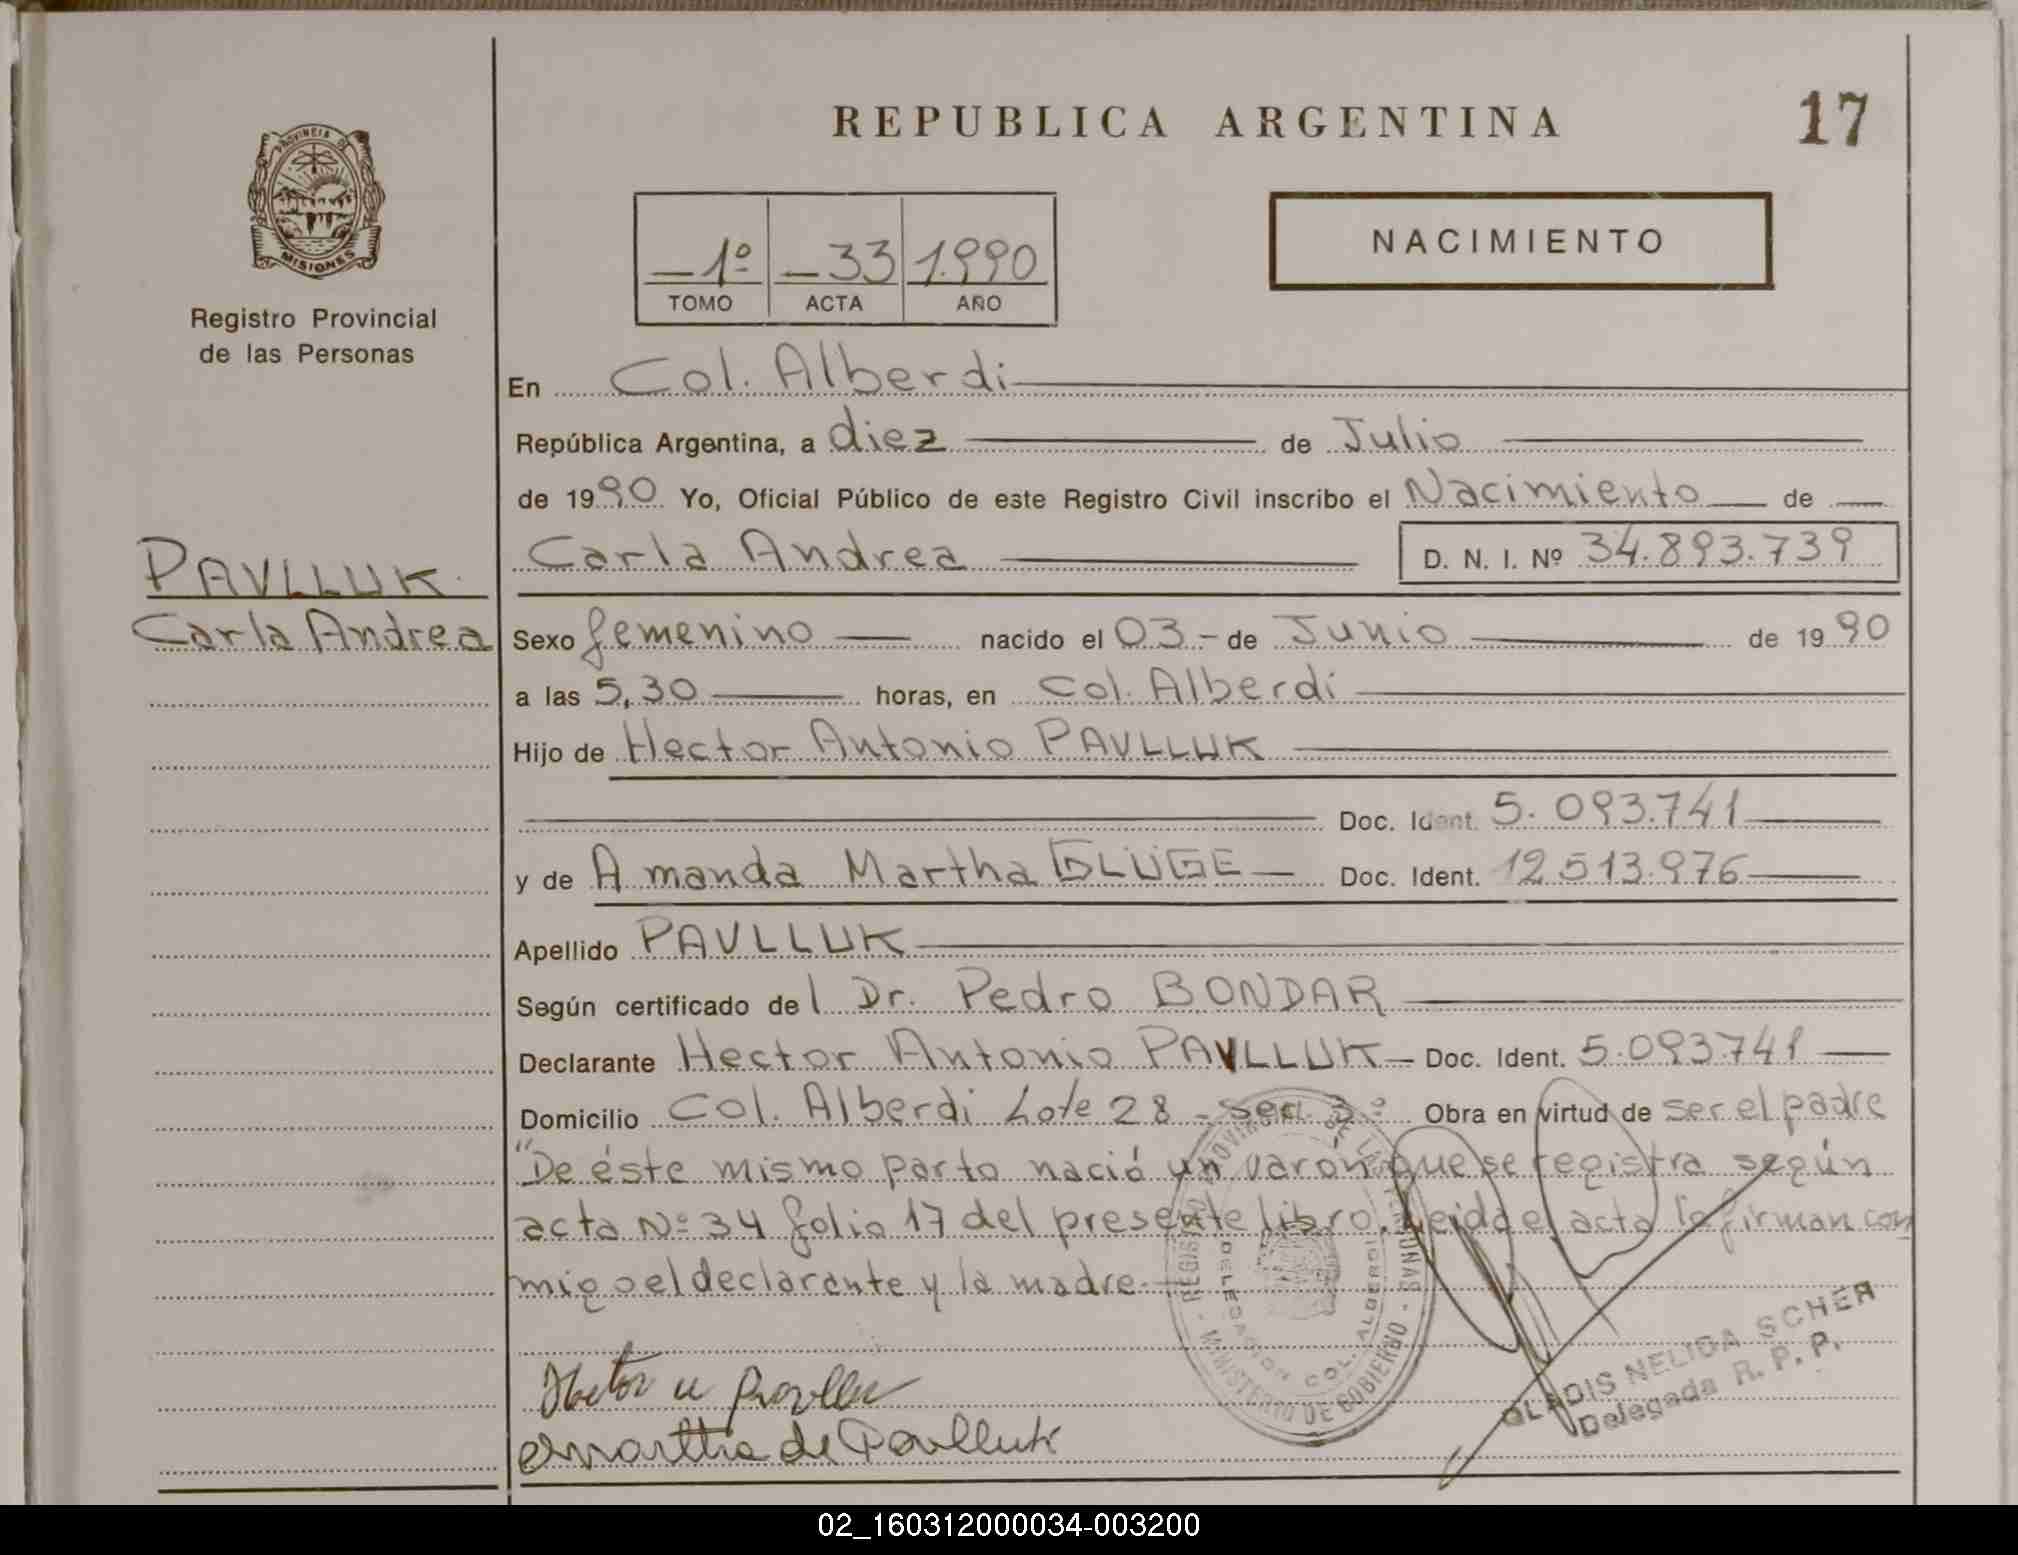 REPUBLICA ARGENTINA
17
PROVINCIA DE
MISIONES
Registro Provincial
de las Personas
1º 33 1.990
TOMO ACTA AÑO
NACIMIENTO
En Col. Alberdi
República Argentina, a diez de Julio
de 1990 Yo, Oficial Público de este Registro Civil inscribo el Nacimiento de
PAVLLUK
Carla Andrea
Carla Andrea D. N. I. Nº 34.893.739
Sexo femenino nacido el 03 - de Junio de 1990
a las 5,30 horas, en Col. Alberdi
Hijo de Hector Antonio PAVLLUK
Doc. Ident. 5.093.741
y de Amanda Martha GLÜGE Doc. Ident. 12.513.976
Apellido PAVLLUK
Según certificado del Dr. Pedro BONDAR
Declarante Hector Antonio PAVLLUK Doc. Ident. 5.093741
Domicilio Col. Alberdi Lote 28 - secc. 3º Obra en virtud de ser el padre
"De éste mismo parto nació un varón que se registra según
acta Nº 34 folio 17 del presente libro. Leida el acta la firman con
migo el declarante y la madre.
REGISTRO PROVINCIAL DE LAS PERSONAS - MINISTERIO DE GOBIERNO -
DELEGACION COL. ALBERDI
GLADIS NELIDA SCHER
Delegada R. P. P.
Martha de Pavlluk
02_160312000034-003200